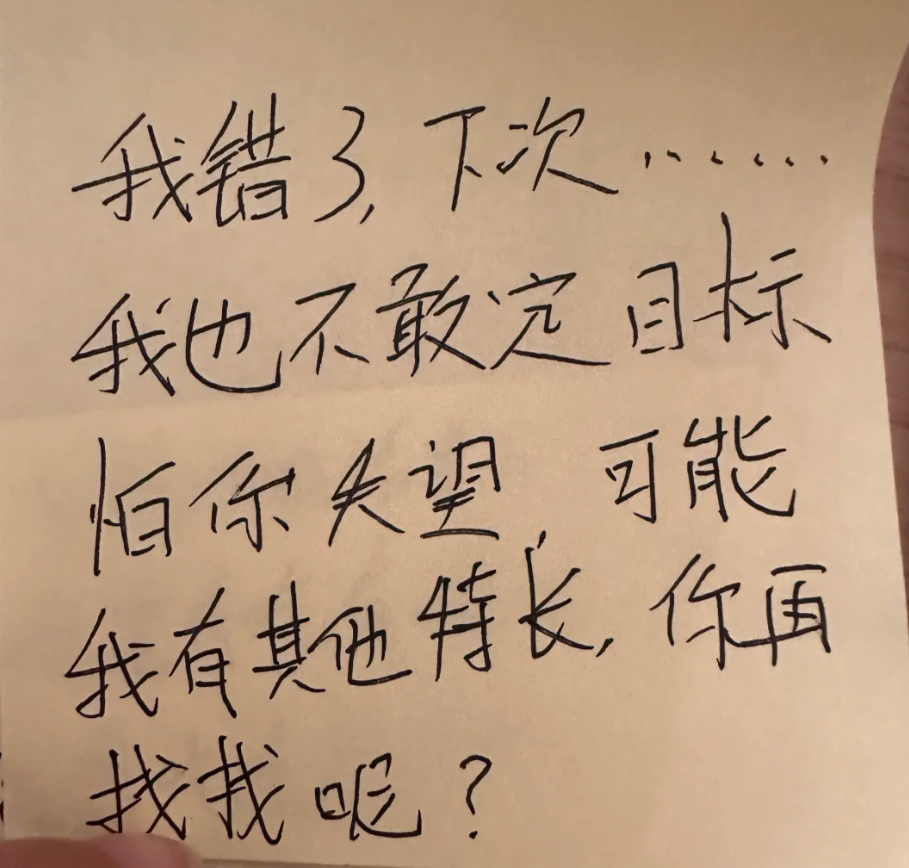 我错了,下次……
我也不敢定目标
怕你失望 可能
我有其他特长,你再
找找呢?